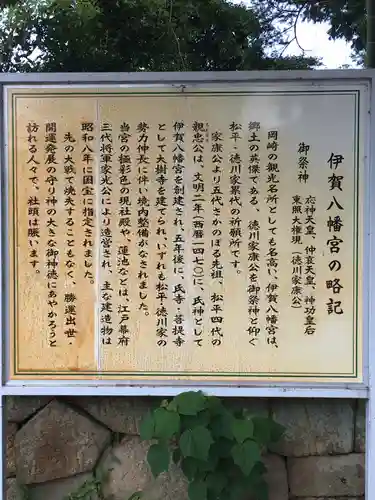 伊賀八幡宮の略記
御祭神
応神天皇、仲哀天皇、神功皇后
東照大権現(徳川家康公)
岡崎の観光名所としても名高い、伊賀八幡宮は、
郷土の英傑である、徳川家康公を御祭神と仰ぐ
松平・徳川家累代の祈願所です。
家康公より五代さかのぼる先祖、松平四代の
親忠公は、文明二年(西暦一四七〇)に、氏神として
伊賀八幡宮を創建され、五年後に、氏寺・菩提寺
として大樹寺を建てられ、いずれも松平・徳川家の
勢力伸長に伴い、境内整備がなされました。
当宮の極彩色の現社殿や、蓮池などは、江戸幕府
三代将軍家光公により造営され、主な建造物は
昭和八年に国宝に指定されました。
先の大戦で焼失することもなく、勝運出世・
開運発展の守り神の大きな御神徳にあやかろうと
訪れる人々で、社頭は賑います。